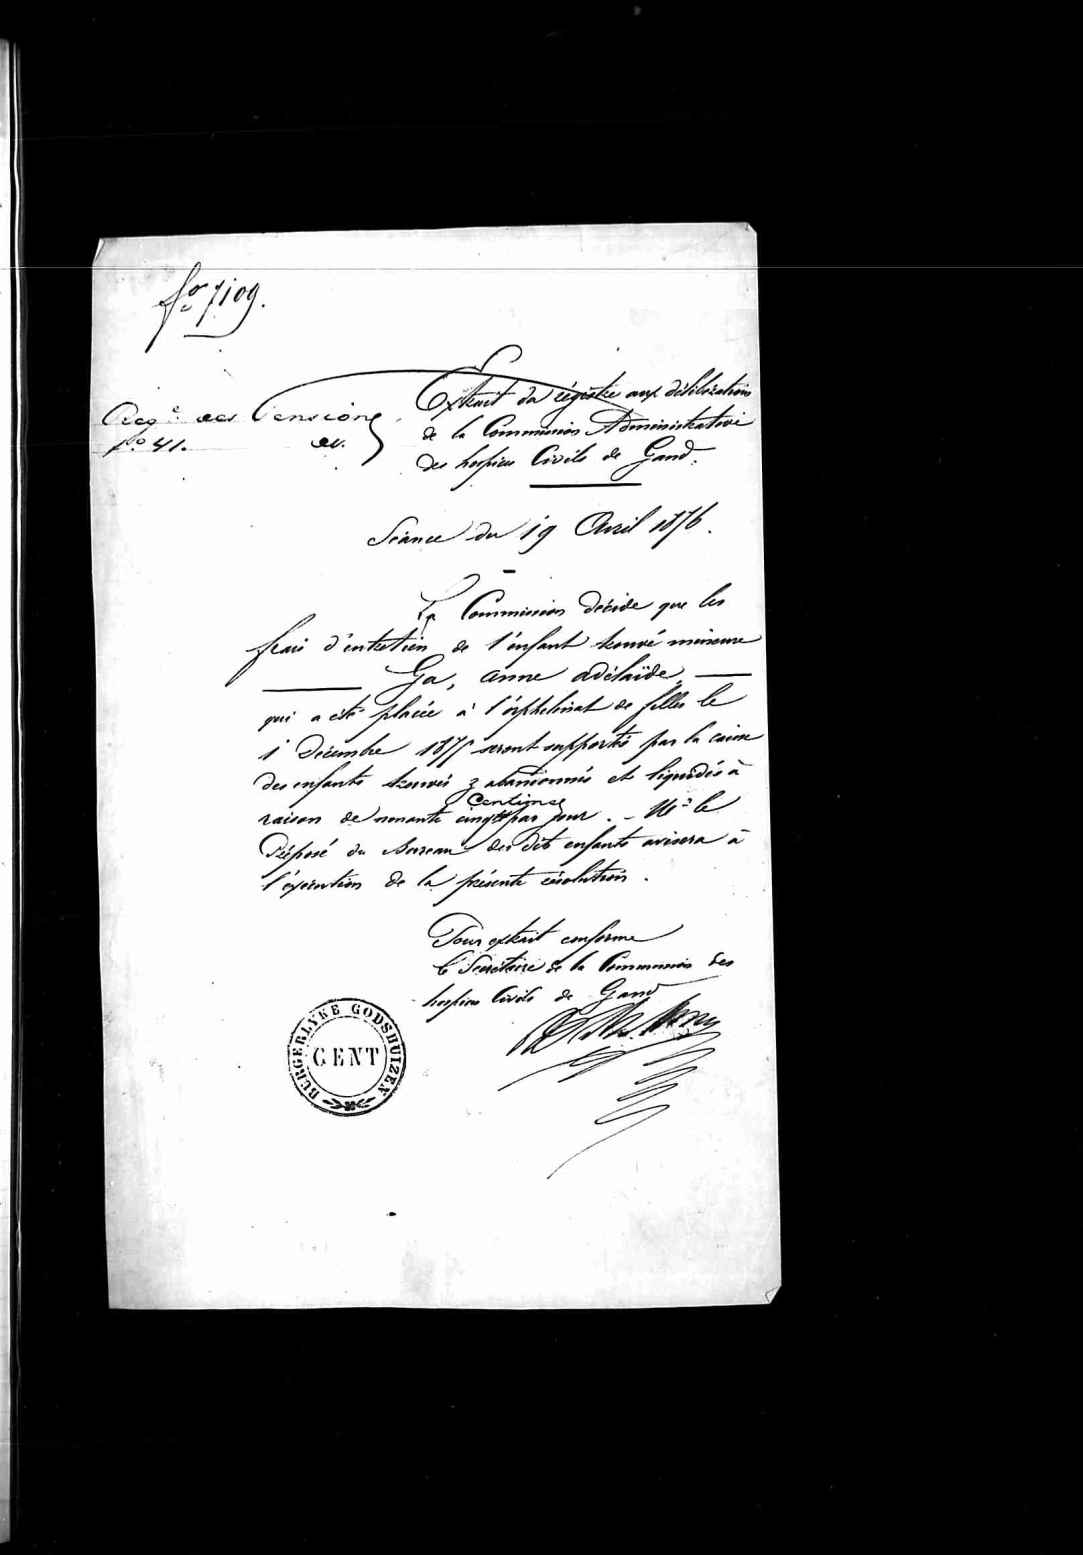 fo 7109.
Reg.e des Pensions
fo 41.
Extrait du régistre aux délibérations
de la Commission Administrative
des hospices Civils de Gand.
Séance du 19 Avril 1876.
La Commission décide que les
frais d'entretien de l'enfant trouvé mineure
Ga, Anne Adélaïde,
qui a été placée à l'orphelinat de filles le
1 Décembre 1875 seront supportés par la caisse
des enfants trouvés & abandonnés et liquidés à
raison de nonante cinq centimes par jour. - Mr le
Préposé du Bureau des dits enfants avisera à
l'exécution de la présente résolution.
Pour extrait conforme
le Secrétaire de la Commission des
hospices Civils de Gand
BURGERLYKE GODSHUIZEN
GENT